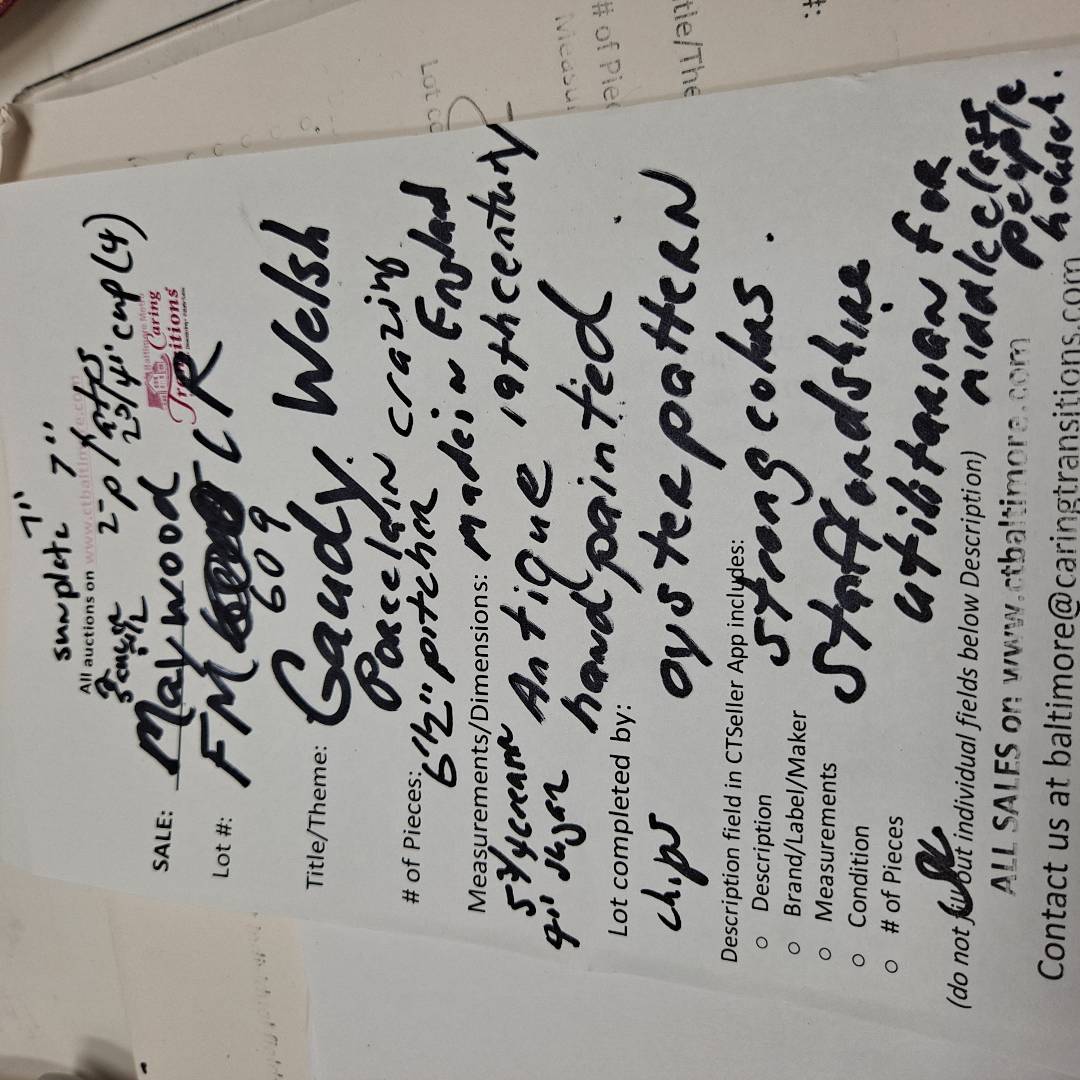 sunplate 7" 7"
All auctions on www.ctbaltimore.com
2-plates
2 3/4" cup (4)
Baltimore Metro
Caring
Transitions
SALE: Maywood
Lot #: FM LR
609
Title/Theme: Gaudy Welsh
Porcelain crazing
# of Pieces: 6 1/2" pitcher made in England
Measurements/Dimensions:
5 3/4 cream Antique 19th century
4" sugar hand painted
Lot completed by:
chips oyster pattern
Description field in CTSeller App includes:
○ Description
○ Brand/Label/Maker
○ Measurements
○ Condition
○ # of Pieces
strong colors.
Staffordshire
utilitarian for
middle class
people
house.
(do not but individual fields below Description)
ALL SALES on www.ctbaltimore.com
Contact us at baltimore@caringtransitions.com
Lot co
Measu
# of Pie
tle/The
#: